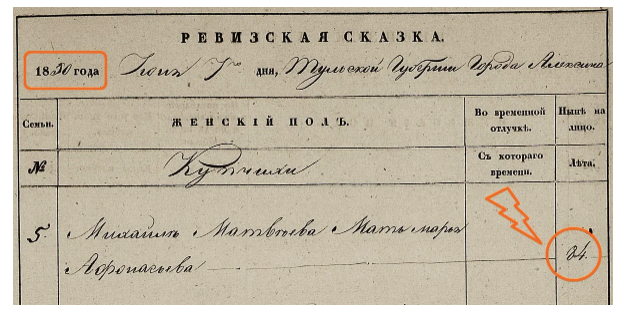 РЕВИЗСКАЯ СКАЗКА.
1850 года Іюня 7го дня, Тульской Губерніи Города Алексина
Семьи. ЖЕНСКІЙ ПОЛЪ. Во временной отлучкѣ. Нынѣ на лицо.
№ Купчихи Съ котораго времени. Лѣта.
5. Михаилъ Матвѣева Мать Марья
Афонасьева 84.